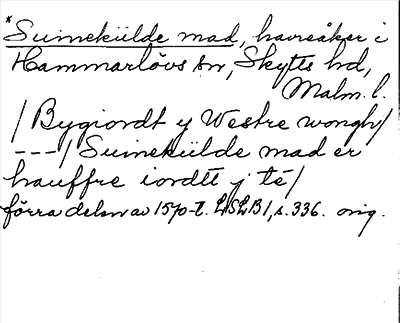 *Suinekülde mad, havreåker i
Hammarlövs sn, Skytts hd,
Malm. l.
/Bygiordt y Westre wongh/
---/Suinekülde mad er
hauffre iordtt y té/
förra delen av 1570-t. LSLB1, s. 336. orig.